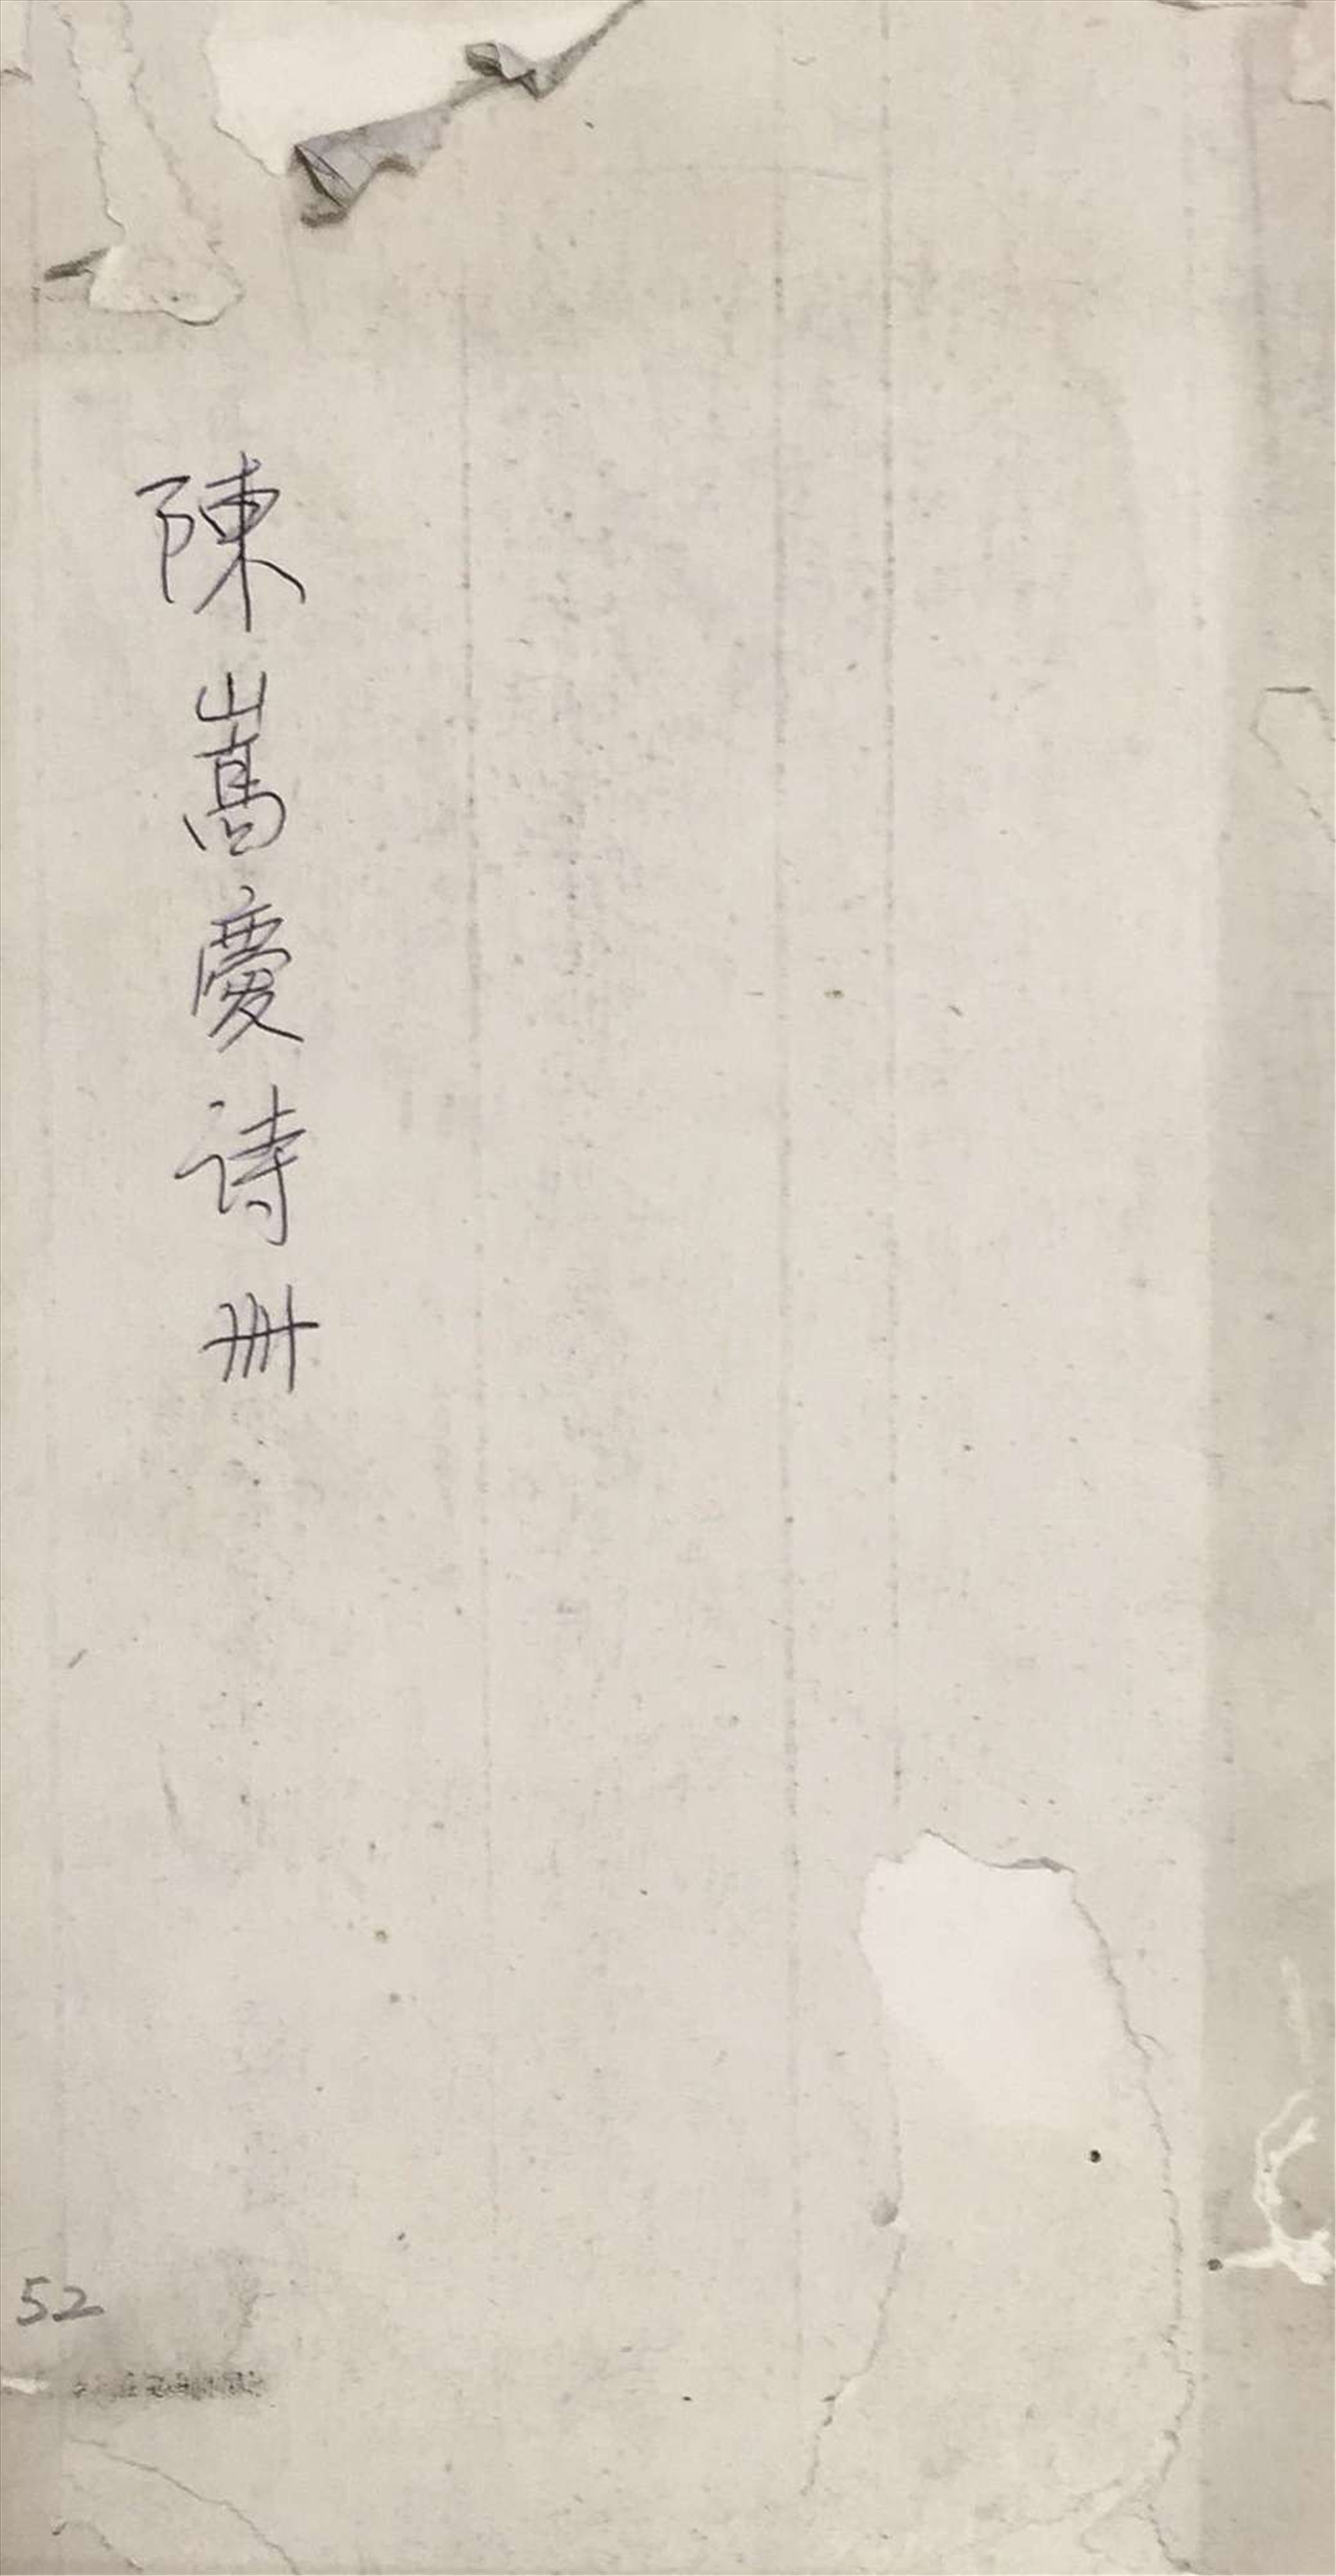 陳嵩慶诗册
52